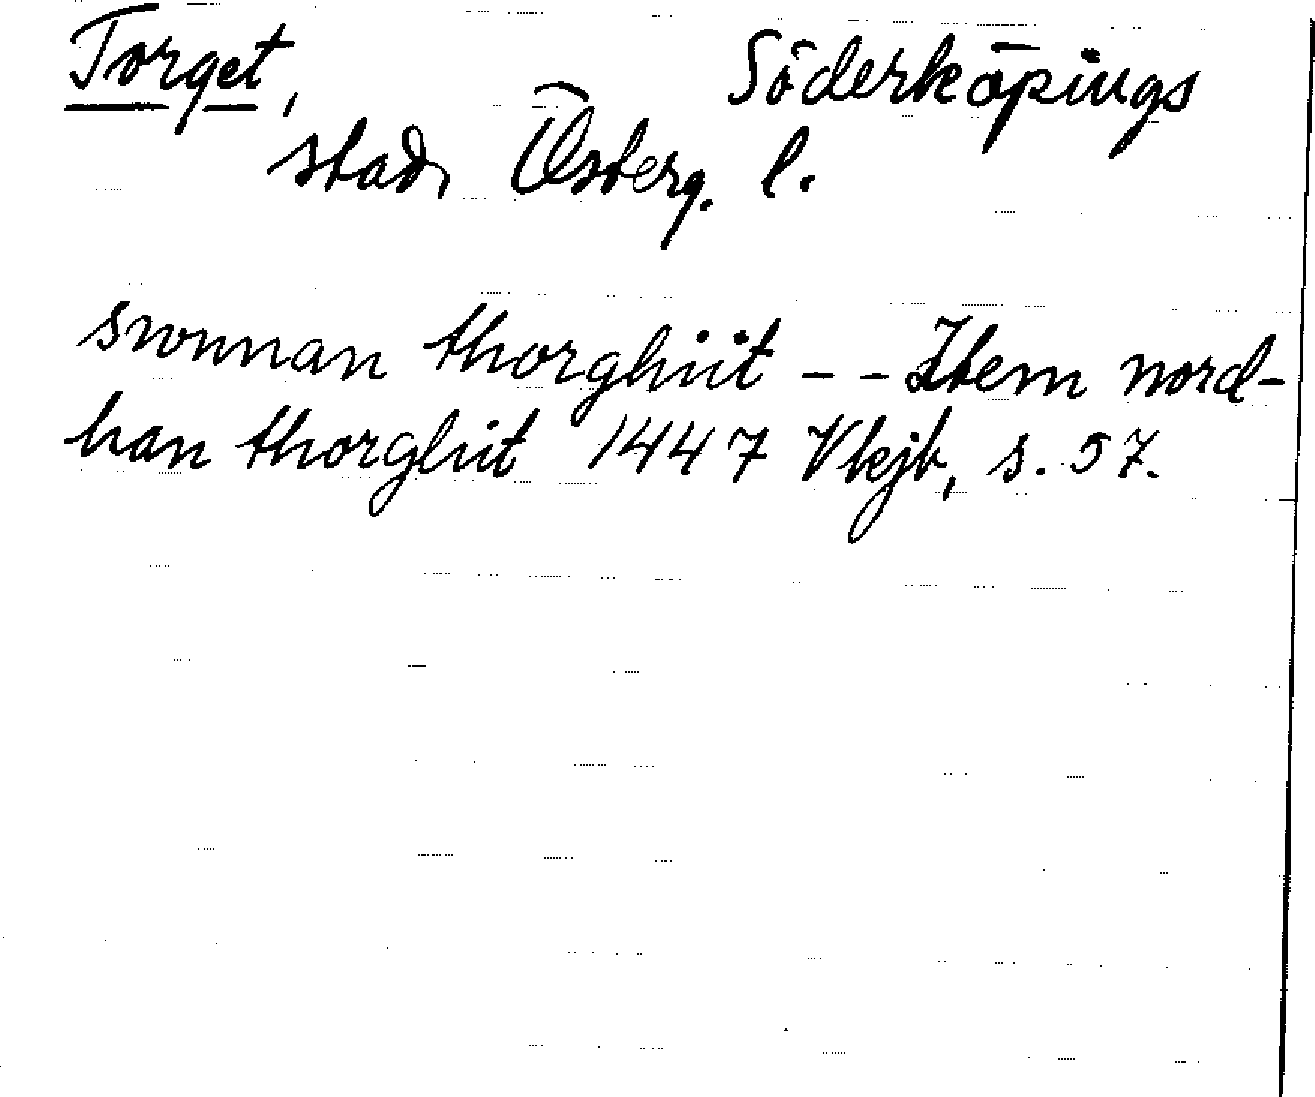 Torget, Söderköpings
stad, Österg. l.
swnnan thorghiit -- Item nord-
han thorghit 1447 Vkjb, s. 57.